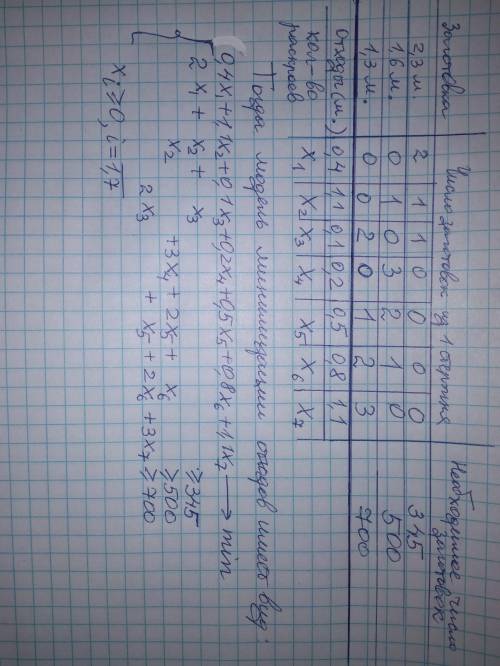 Заготовки Число заготовок из 1 стержня Необходимое число заготовок
2,3 м. 2 1 1 0 0 0 0 345
1,6 м. 0 1 0 3 2 1 0 500
1,3 м. 0 0 2 0 1 2 3 700
отходы (м.) 0,4 1,1 0,1 0,2 0,5 0,8 1,1
кол-во раскроев x1 x2 x3 x4 x5 x6 x7
Тогда модель минимизации отходов имеет вид:
0,4x+1,1x2+0,1x3+0,2x4+0,5x5+0,8x6+1,1x7 → min
2x1 + x2 + x3 ≥345
x2 +3x4 + 2x5 + x6 ≥500
2x3 + x5 + 2x6 + 3x7 ≥700
xi ≥0, i=1,7